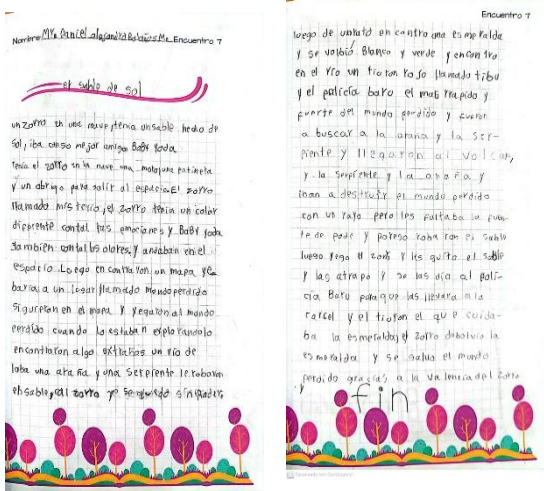 Encuentro 7
Nombre: Mya Daniel alejandra Bolaños Me Encuentro 7
el sable de sol
un zorro en una nave, tenia un sable hecho de
sol, iba con so mejor amigo Baby Yoda
tenia el zorro en la nave una moto, una patineta
y un abrigo para salir al espacio. El zorro
llamado misterio, el zorro tenia un color
diferente con tal tus emociones y Baby Yoda
también con tal los olores, y andaban en el
espacio. Luego encontraron un mapa
a un lugar llamado Mundo perdido
siguieron en el mapa y yegaron al mundo
perdido cuando lo estaban explorando lo
encontraron algo extraños un río de
laba una araña y una serpiente le robaron
el sable, el zorro se quedo sin poderes
luego de un rato encontro una esmeralda
y se volbió Blanco y verde y encontro
en el río un tioton rojo llamado tibu
y el policía baro el mas rrapido y
fuerte del mundo perdido y fueron
a buscar a la araña y la ser-
piente y llegaron al volcan,
y la serpiente y la araña y
inan a destruir el mundo perdido
con un rayo pero les faltaba la fuen-
te de pode y por eso robaron el sable
luego yego el zorro y les quito el sable
y las atrapo y se las dio al poli-
cía Baro para que las llevara a la
carcel y el tioton el que cuida-
ba la esmeralda, el zorro debolvio la
esmeralda y se salvo el mundo
perdido gracias a la valencia del zorro
fin